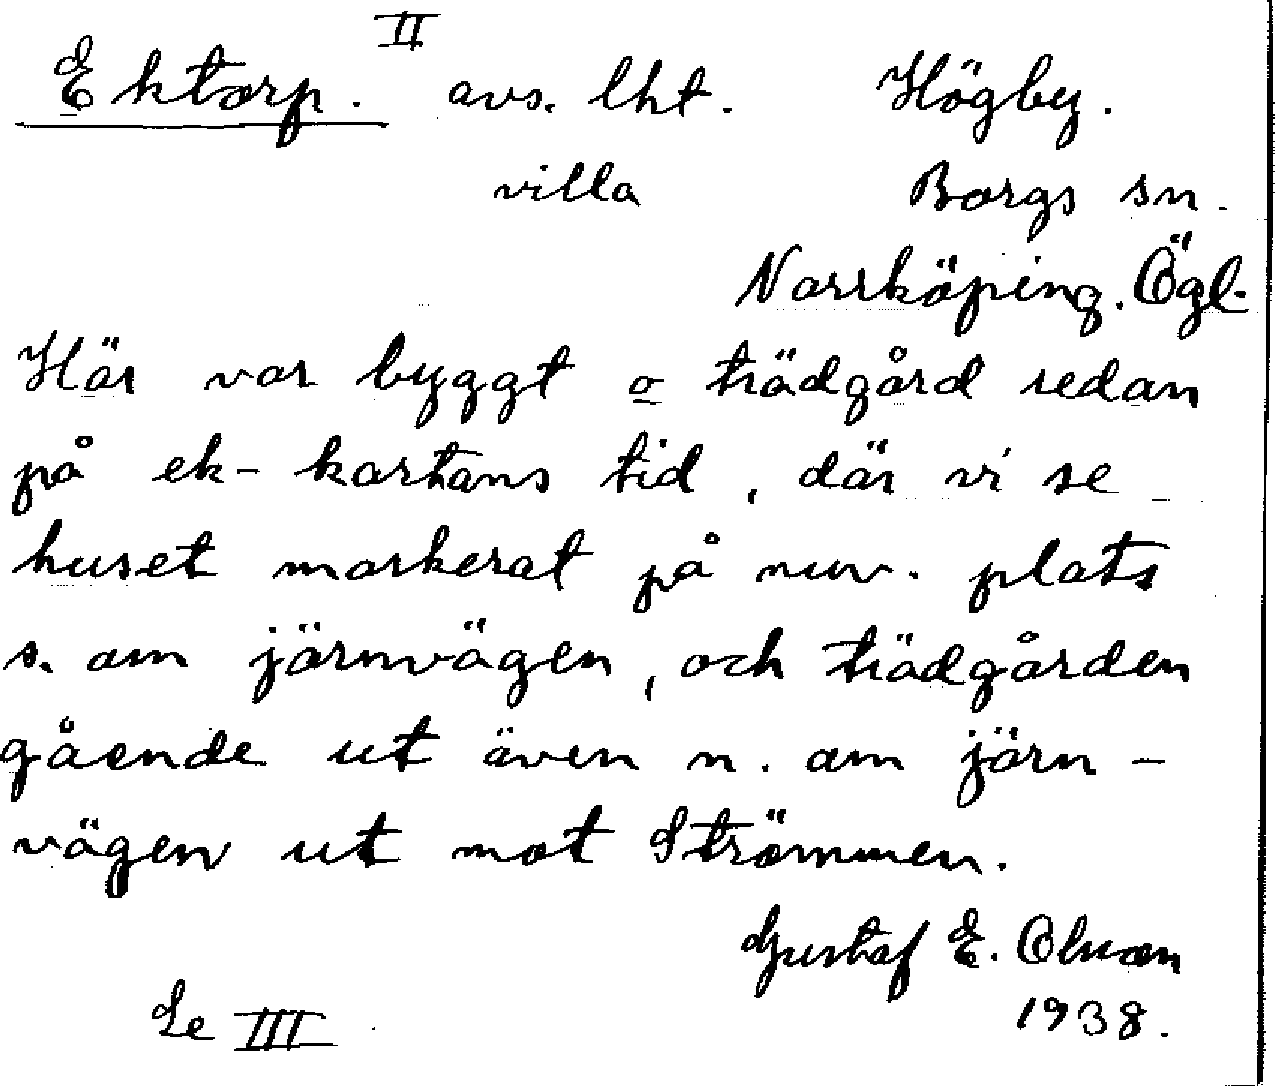 Ektorp. II avs. lht. Högby.
villa Borgs sn.
Norrköping. Ögl.
Här var byggt o trädgård redan
på ek-kartans tid, där vi se
huset markerat på nuv. plats
s. om järnvägen, och trädgården
gående ut även n. om järn-
vägen ut mot Strömmen.
Gustaf E. Olsson
1938.
Se III